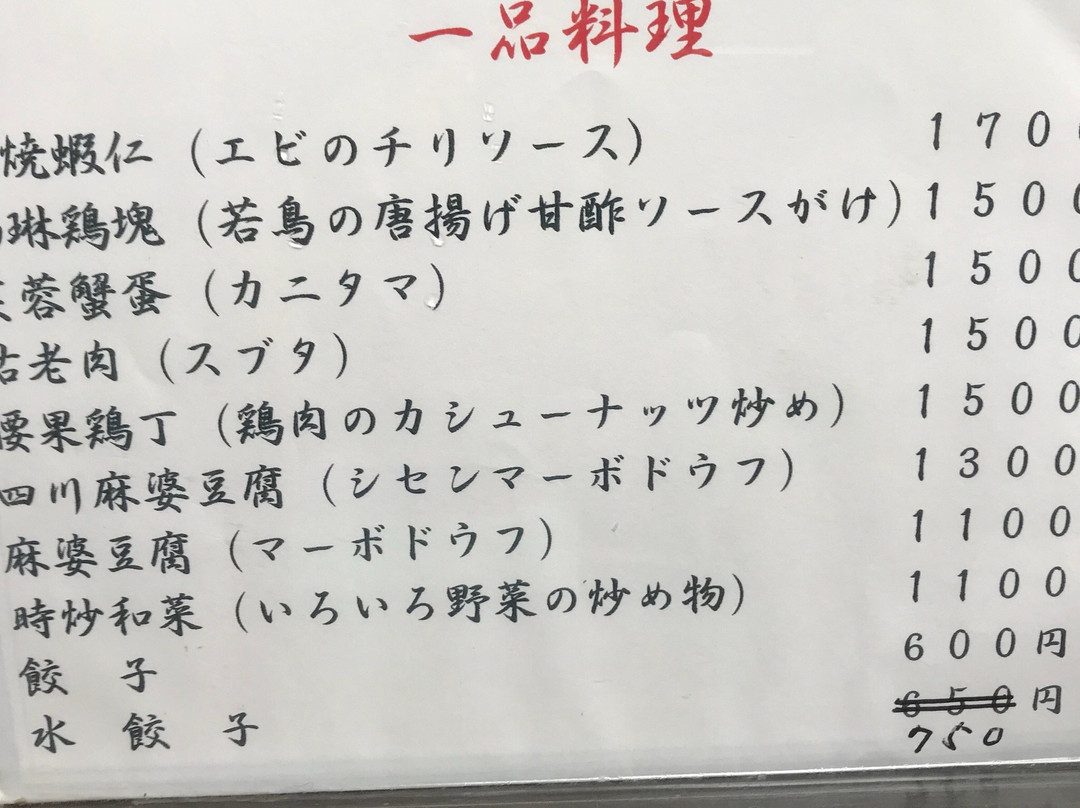 一品料理
焼蝦仁 (エビのチリソース) 170
琳鶏塊 (若鳥の唐揚げ甘酢ソースがけ) 1500
蓉蟹蛋 (カニタマ) 1500
老肉 (スブタ) 1500
腰果鶏丁 (鶏肉のカシューナッツ炒め) 1500
四川麻婆豆腐 (シセンマーボドウフ) 1300
麻婆豆腐 (マーボドウフ) 1100
時炒和菜 (いろいろ野菜の炒め物) 1100
餃子 600円
水餃子 650円
750